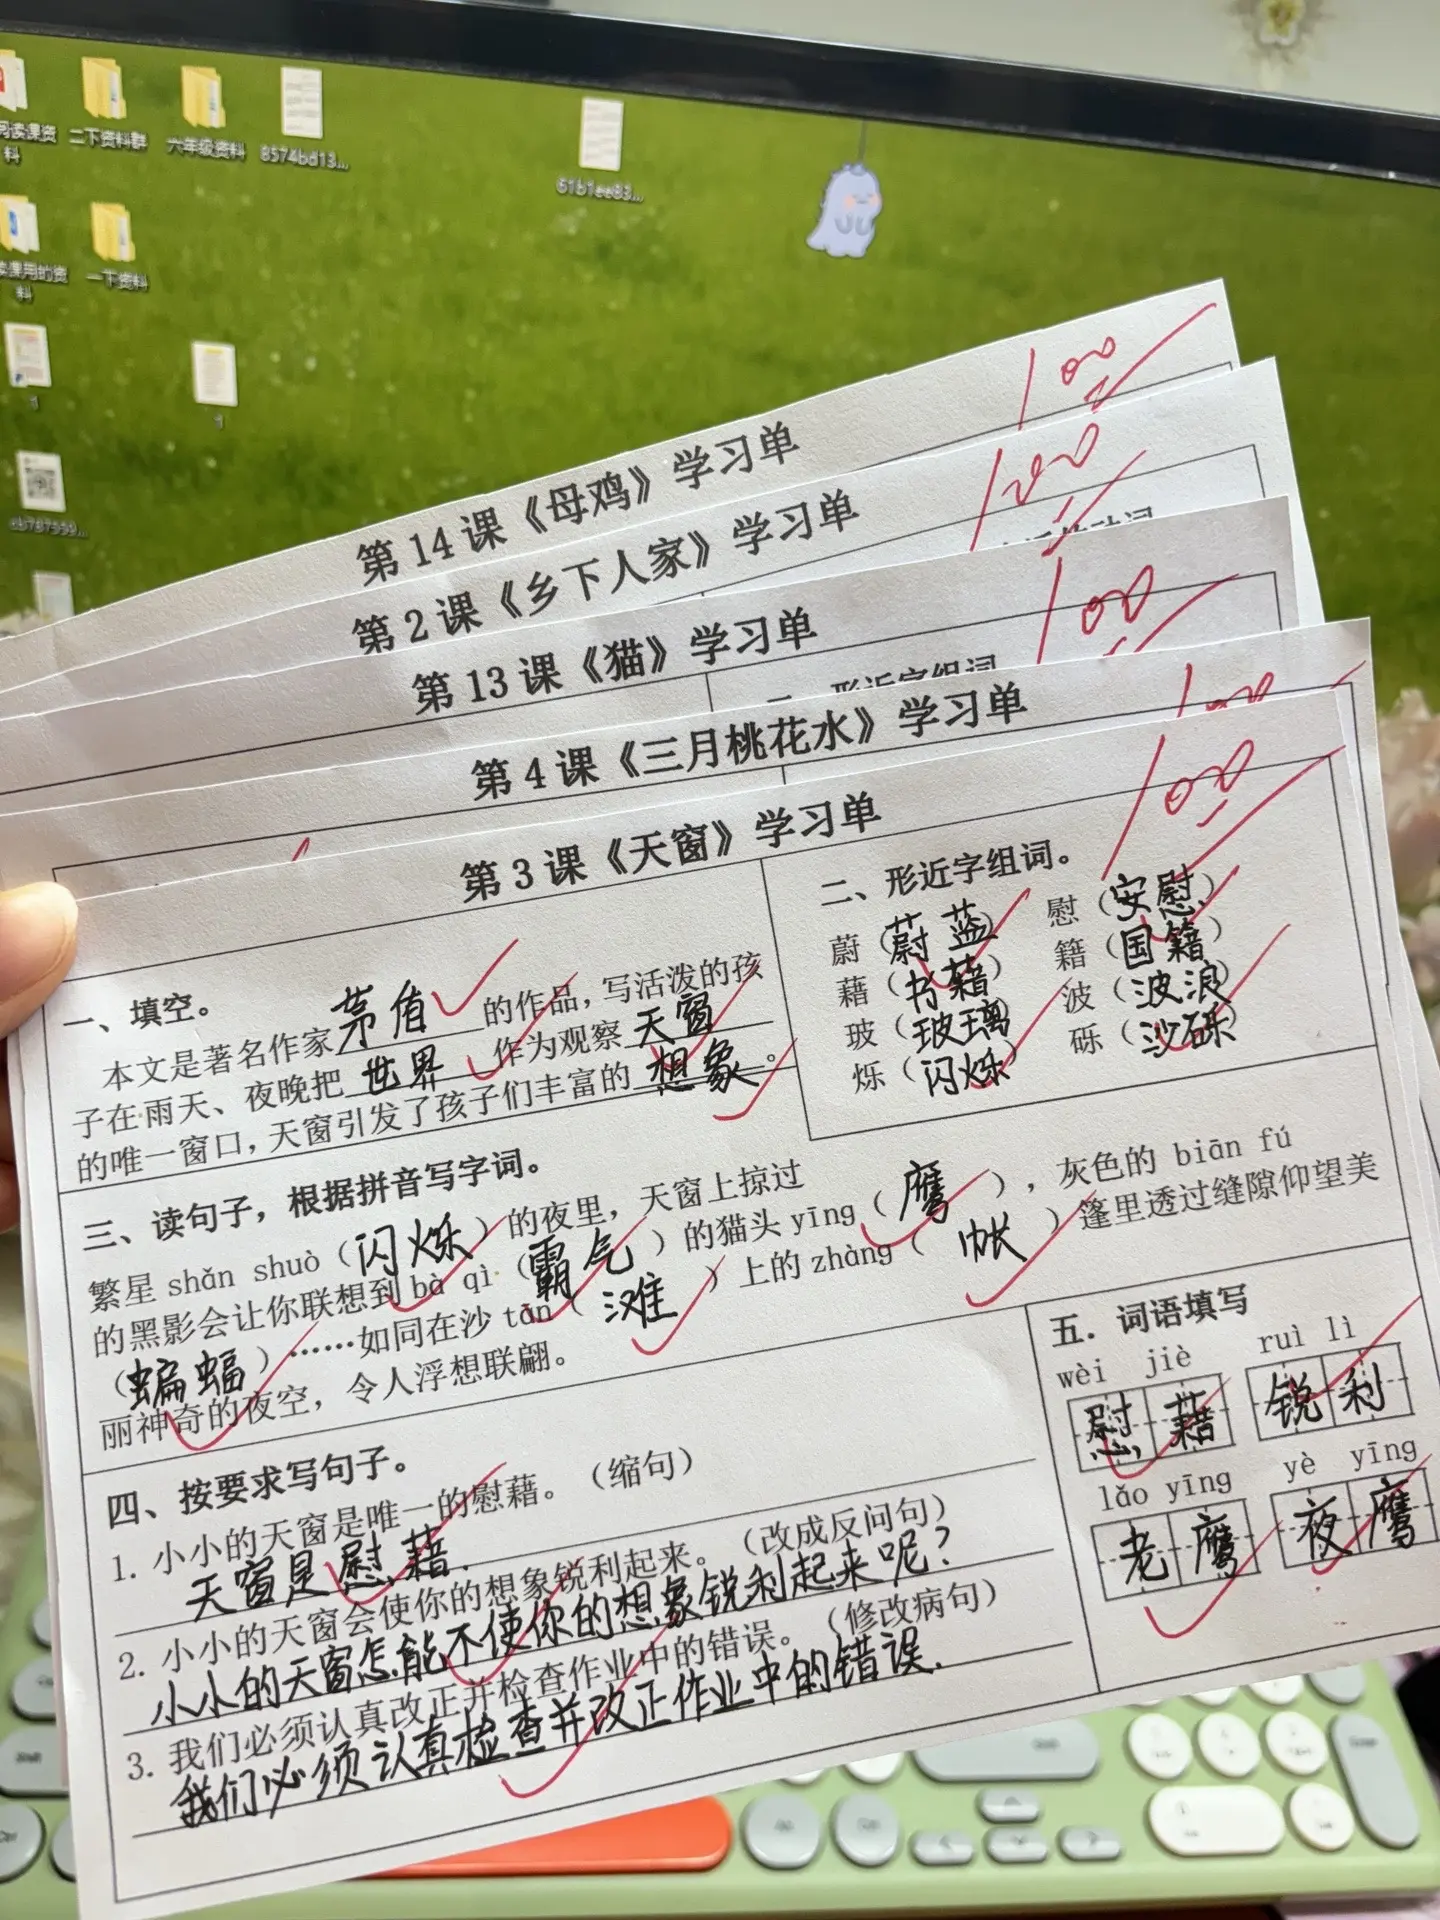 二下资料群
六年级资料
8574bd13...
61b1ee83...
一下资料
1
1
第14课《母鸡》学习单
100
第2课《乡下人家》学习单
100
第13课《猫》学习单
100
第4课《三月桃花水》学习单
100
第3课《天窗》学习单
100
一、填空。
本文是著名作家茅盾的作品，写活泼的孩
子在雨天、夜晚把世界作为观察天窗
的唯一窗口，天窗引发了孩子们丰富的想象。
二、形近字组词。
蔚（蔚蓝） 慰（安慰）
藉（书藉） 籍（国籍）
玻（玻璃） 波（波浪）
烁（闪烁） 砾（沙砾）
三、读句子，根据拼音写字词。
繁星 shǎn shuò（闪烁）的夜里，天窗上掠过
的黑影会让你联想到 bà qì（霸气）的猫头 yīng（鹰），灰色的 biān fú
（蝙蝠）……如同在沙 tān（滩）上的 zhàng（帐）篷里透过缝隙仰望美
丽神奇的夜空，令人浮想联翩。
四、按要求写句子。
1. 小小的天窗是唯一的慰藉。（缩句）
天窗是慰藉.
2. 小小的天窗会使你的想象锐利起来。（改成反问句）
小小的天窗怎能不使你的想象锐利起来呢？
3. 我们必须认真改正并检查作业中的错误。（修改病句）
我们必须认真检查并改正作业中的错误.
五. 词语填写
wèi jiè ruì lì
慰藉 锐利
lǎo yīng yè yīng
老鹰 夜鹰